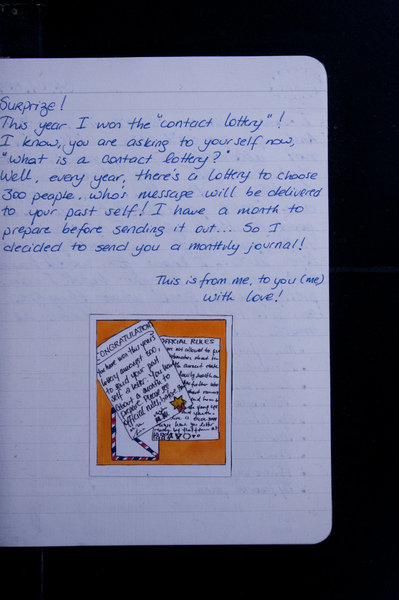 Surprize!
This year I won the "contact lottery"!
I know, you are asking to yourself now,
"What is a contact lottery?"
Well, every year, there's a lottery to choose
300 people, who's message will be delivered
to your past self! I have a month to
prepare before sending it out... So I
decided to send you a monthly journal!
This is from me, to you (me)
with love!
CONGRATULATION
You have won this year's
lottery amongst 300,
to send your past
self a letter. You have
about a month to
prepare. Please
official rules, before
OFFICIAL RULES
not allowed to